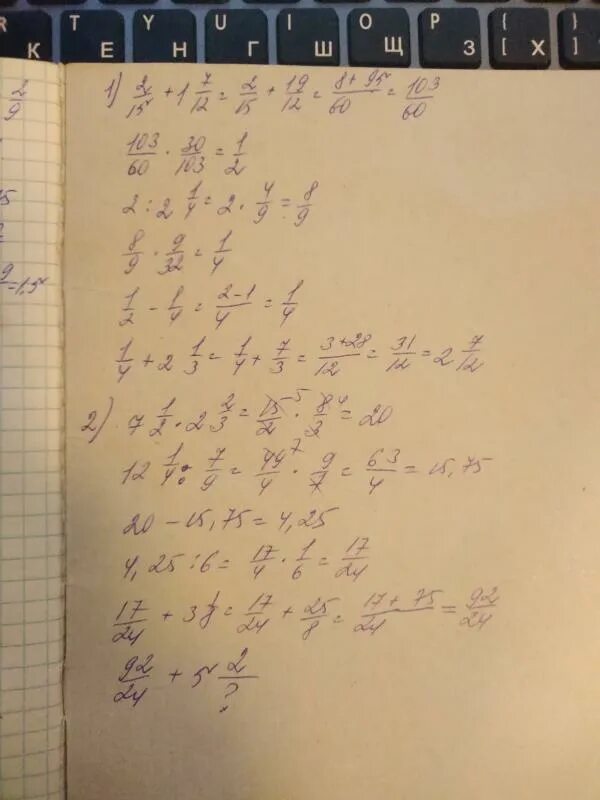 R T Y U I O P { }
К Е Н Г Ш Щ З [ Х ]
2/9
9/ = 1,5
1) 2/15 + 1 7/12 = 2/15 + 19/12 = 8+95/60 = 103/60
103/60 · 30/103 = 1/2
2 : 2 1/4 = 2 · 4/9 = 8/9
8/9 · 9/32 = 1/4
1/2 - 1/4 = 2-1/4 = 1/4
1/4 + 2 1/3 = 1/4 + 7/3 = 3+28/12 = 31/12 = 2 7/12
2) 7 1/2 · 2 2/3 = 15/2 · 8/3 = 20
12 1/4 : 7/9 = 49/4 · 9/7 = 63/4 = 15,75
20 - 15,75 = 4,25
4,25 : 6 = 17/4 · 1/6 = 17/24
17/24 + 3 1/8 = 17/24 + 25/8 = 17+75/24 = 92/24
92/24 + 5 2/?